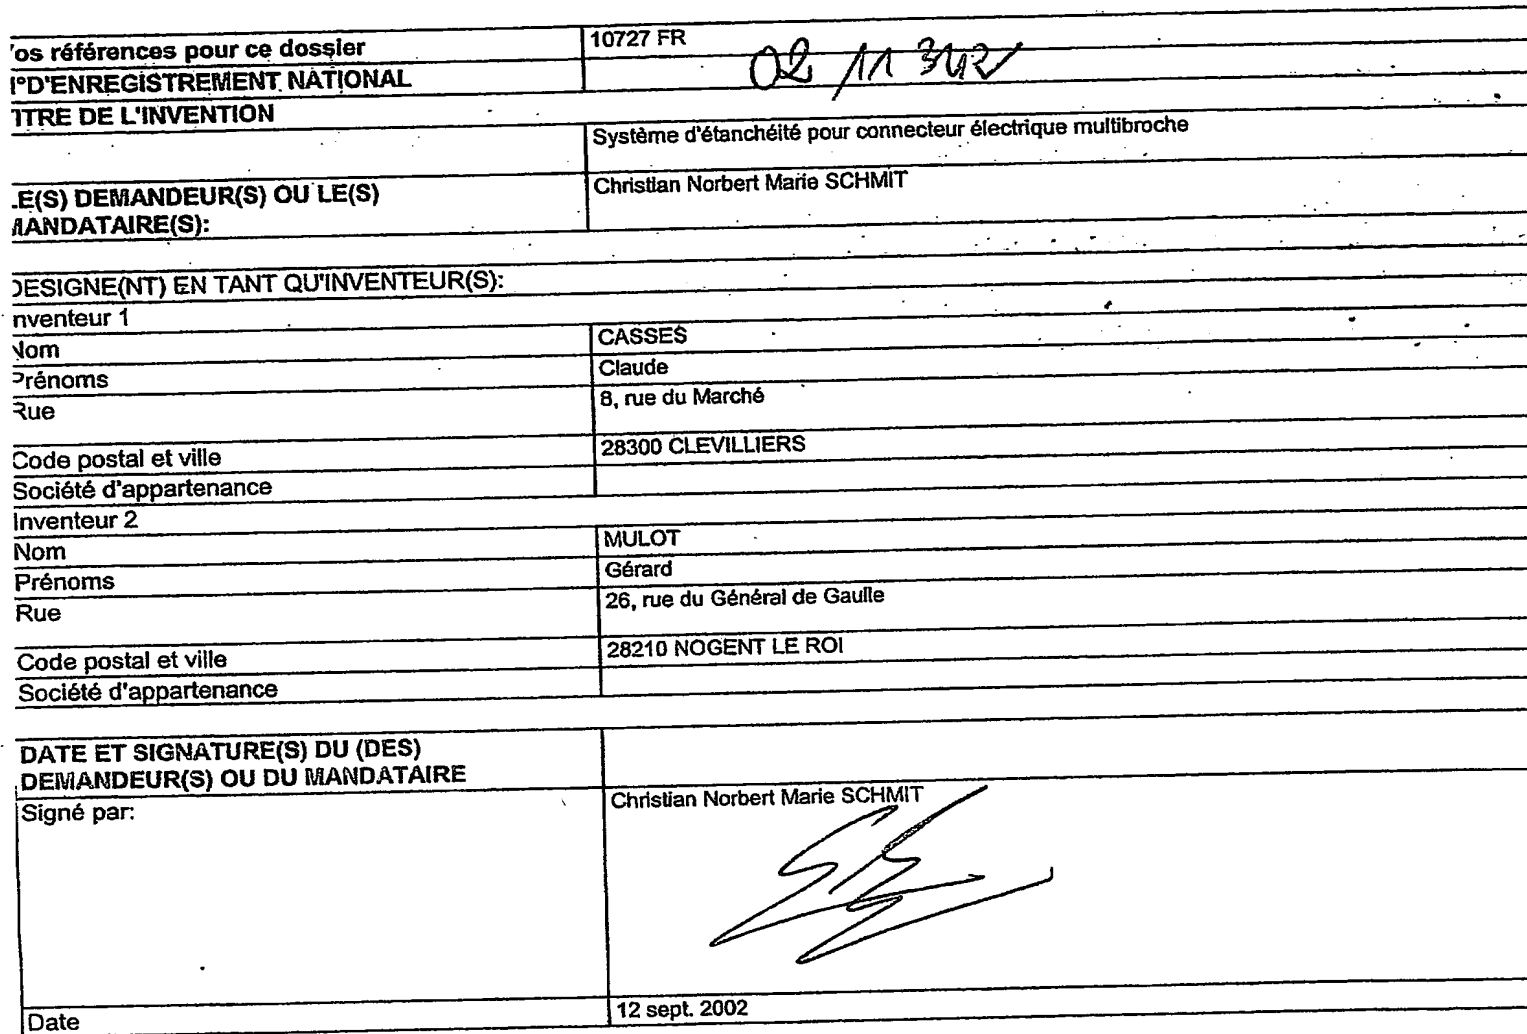 os références pour ce dossier 10727 FR
°D'ENREGISTREMENT NATIONAL 02 11 342
ITRE DE L'INVENTION
Système d'étanchéité pour connecteur électrique multibroche
E(S) DEMANDEUR(S) OU LE(S) Christian Norbert Marie SCHMIT
MANDATAIRE(S):
DESIGNE(NT) EN TANT QU'INVENTEUR(S):
nventeur 1
Nom CASSES
Prénoms Claude
Rue 8, rue du Marché
Code postal et ville 28300 CLEVILLIERS
Société d'appartenance
Inventeur 2
Nom MULOT
Prénoms Gérard
Rue 26, rue du Général de Gaulle
Code postal et ville 28210 NOGENT LE ROI
Société d'appartenance
DATE ET SIGNATURE(S) DU (DES)
DEMANDEUR(S) OU DU MANDATAIRE
Signé par: Christian Norbert Marie SCHMIT
Date 12 sept. 2002